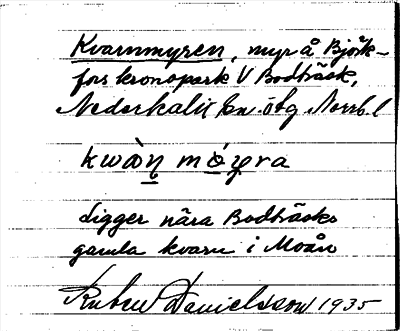 Kvarnmyren, myr å Björk-
fors kronopark V Bodträsk,
Nederkalix sn. ötg Norrb. l
kwàn̥ mó̱yra
ligger nära Bodträsks
gamla kvarn i Moån
Ruben Danielsson 1935